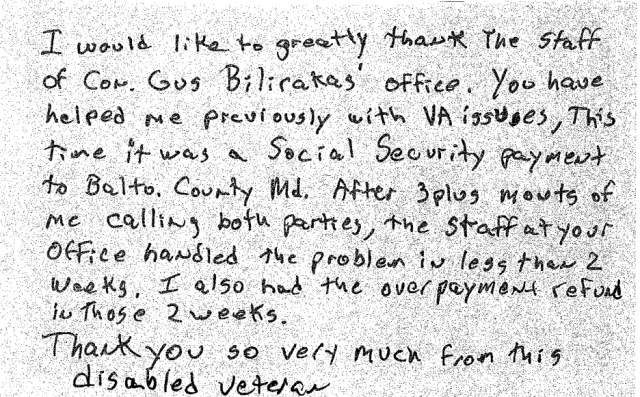 I would like to greatly thank The Staff
of Con. Gus Bilirakas' office. You have
helped me previously with VA issues, This
time it was a Social Security payment
to Balto. County Md. After 3plus mouts of
me calling both parties, the Staff at your
Office handled the problem in less than 2
weeks. I also had the overpayment refund
in those 2 weeks.
Thank you so very much from this
disabled veteran